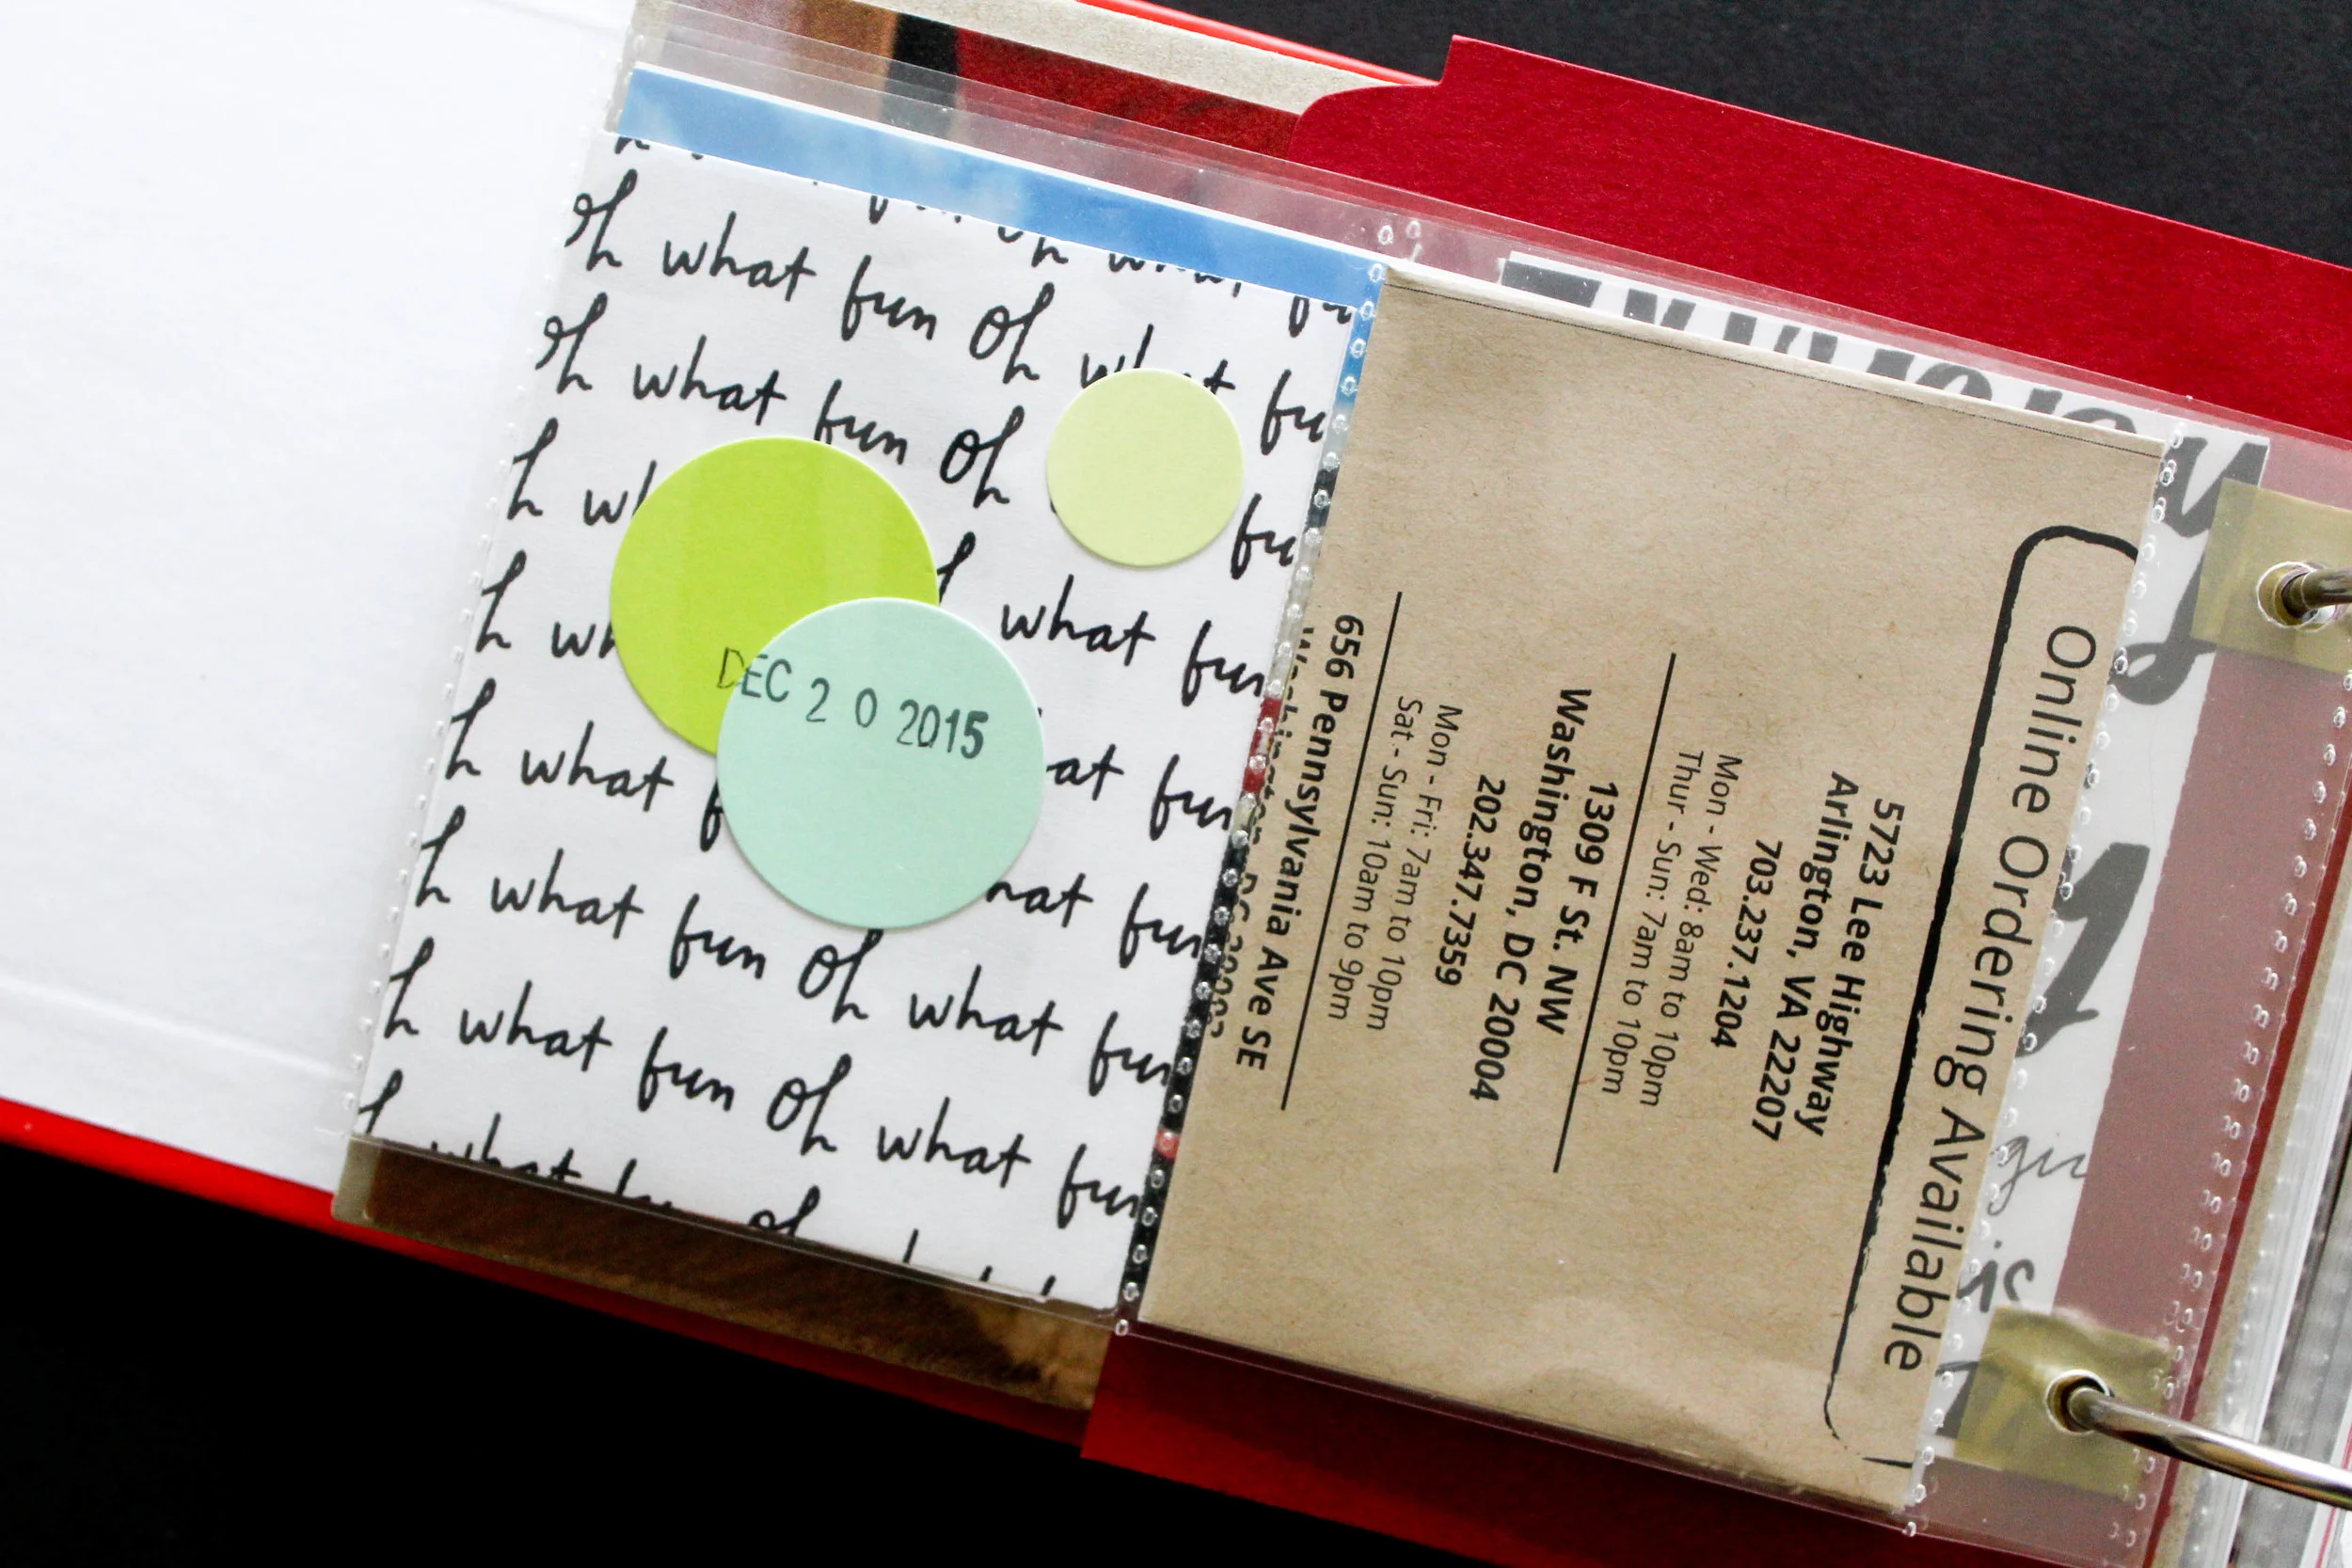 oh what fun Oh what fu
oh what fun Oh fu
h wh what fun
h wh at fun
h what f hat fun
h what fun Oh what fun
h what fun Oh what fun
DEC 20 2015
Online Ordering Available
5723 Lee Highway
Arlington, VA 22207
703.237.1204
Mon - Wed: 8am to 10pm
Thur - Sun: 7am to 10pm
1309 F St. NW
Washington, DC 20004
202.347.7359
Mon - Fri: 7am to 10pm
Sat - Sun: 10am to 9pm
656 Pennsylvania Ave SE